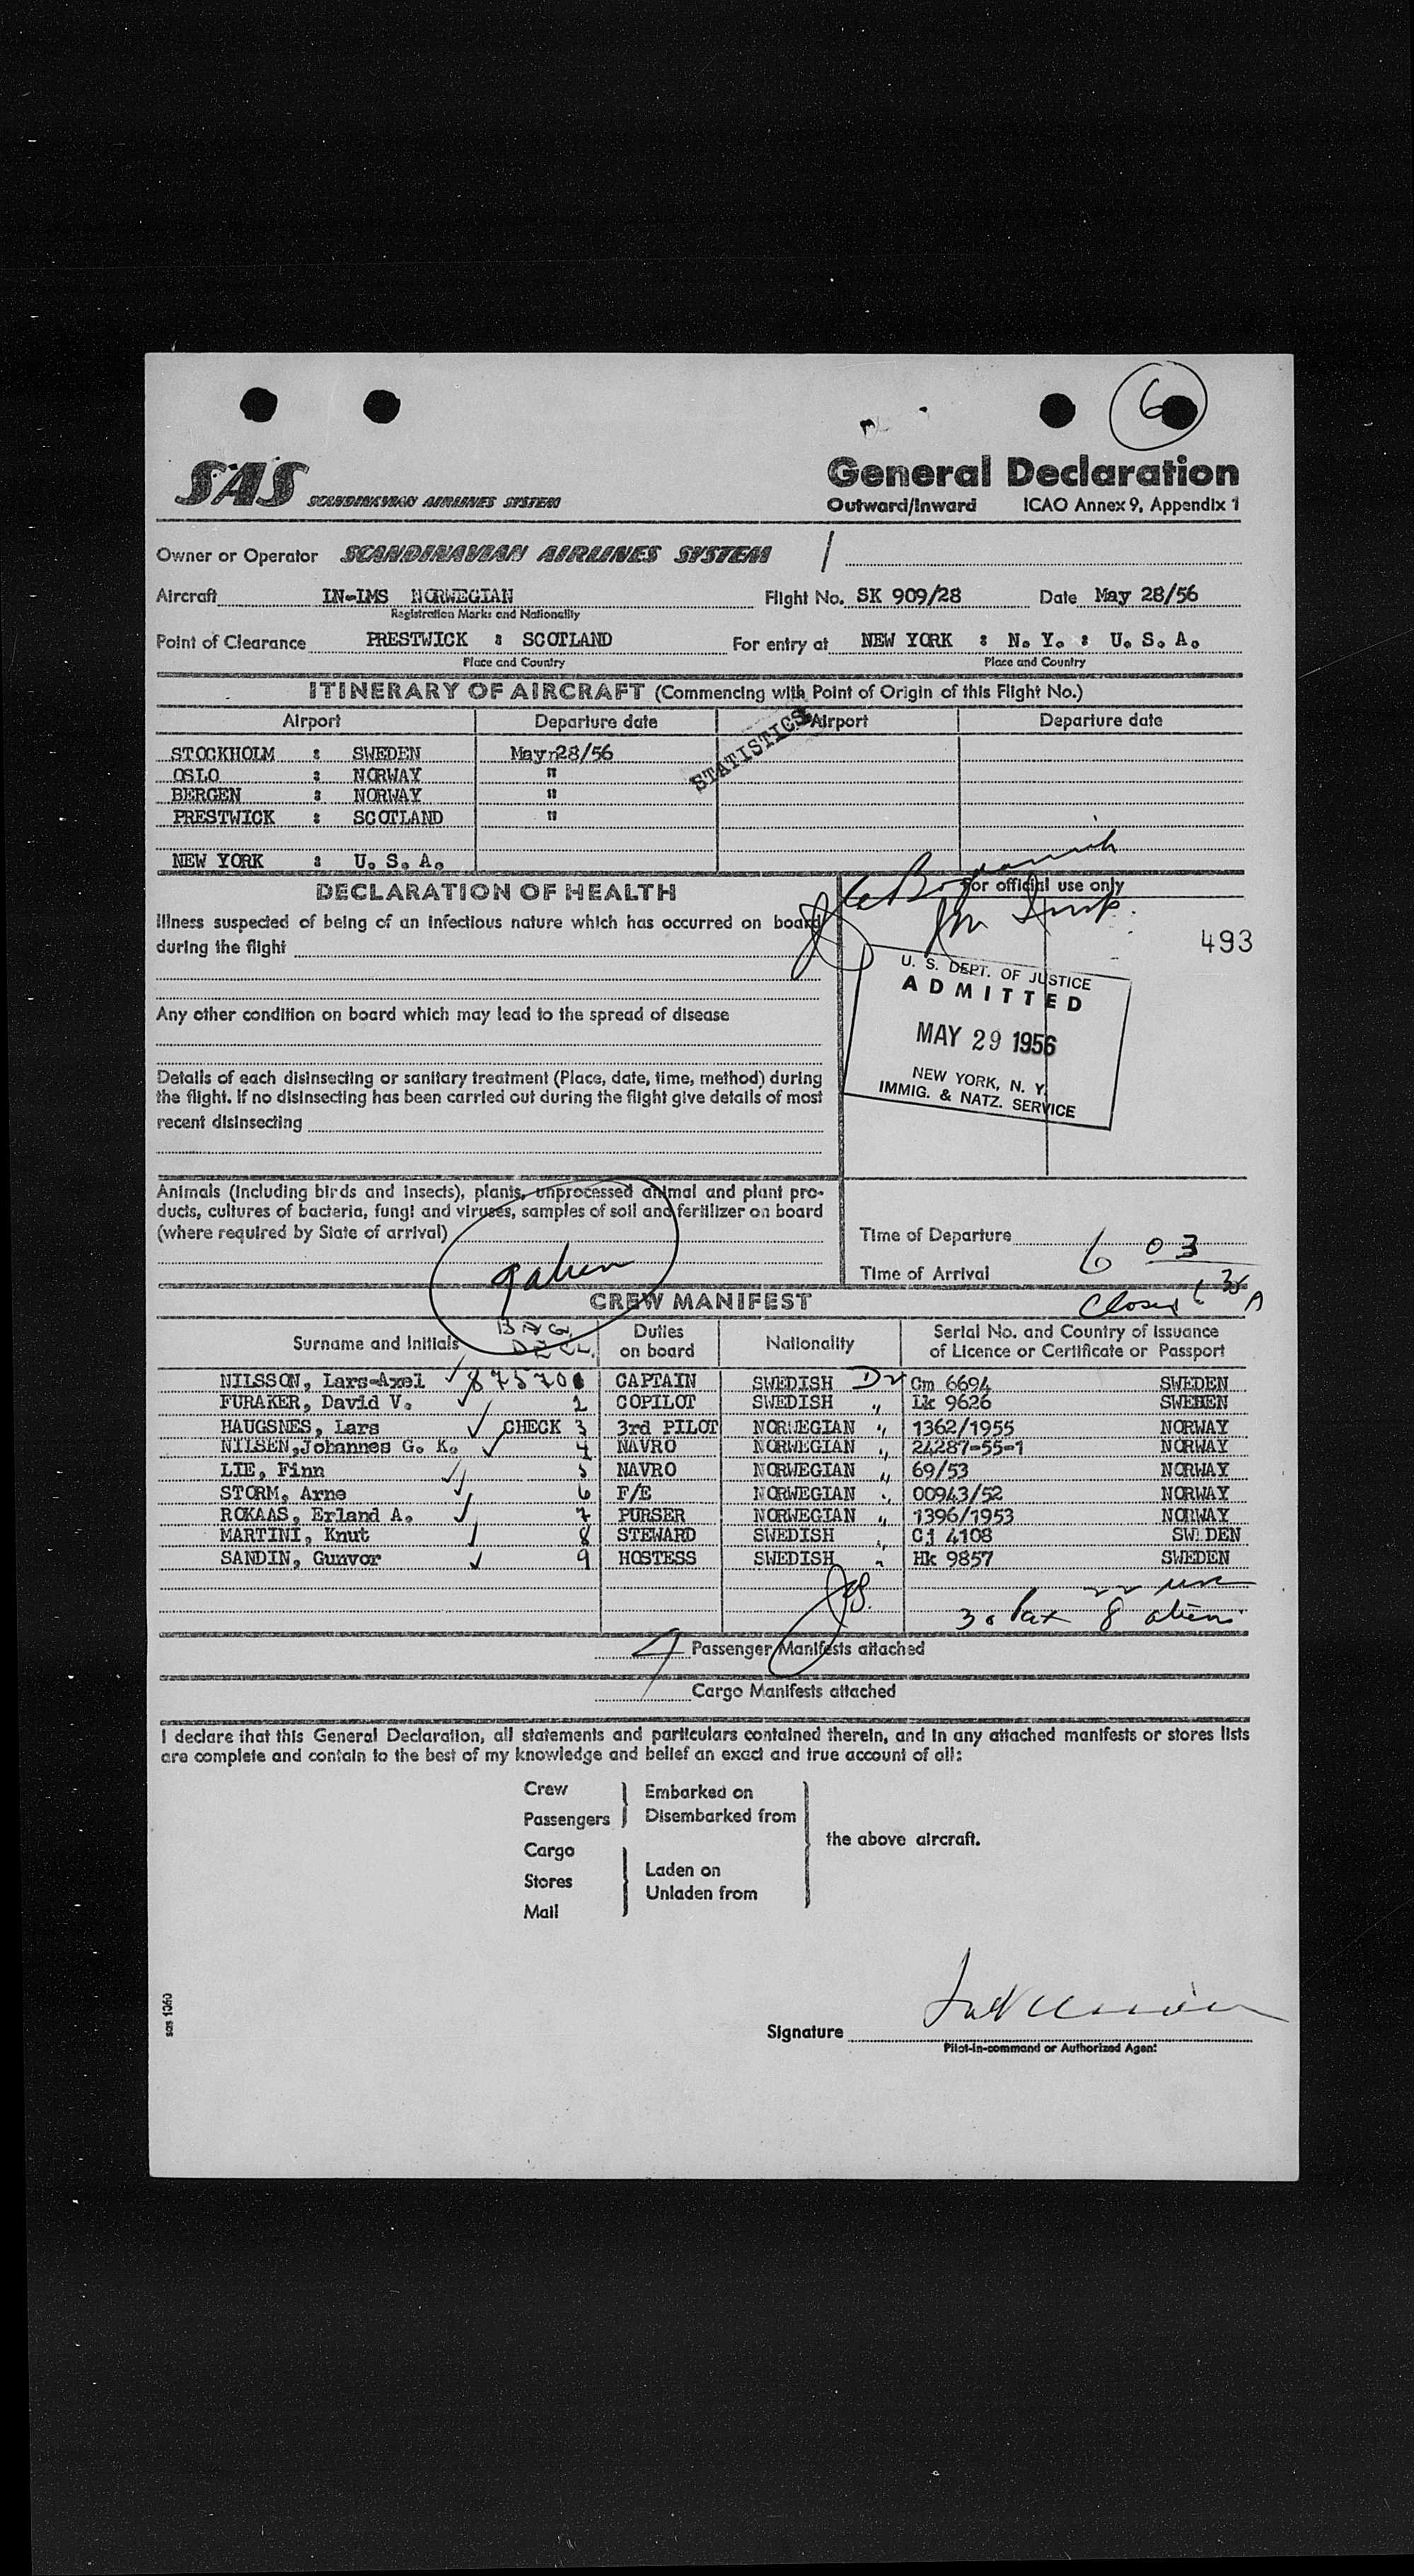 6
SAS SCANDINAVIAN AIRLINES SYSTEM
General Declaration
Outward/Inward ICAO Annex 9, Appendix 1
Owner or Operator SCANDINAVIAN AIRLINES SYSTEM /
Aircraft LN-LMS NORWEGIAN Flight No. SK 909/28 Date May 28/56
Registration Marks and Nationality
Point of Clearance PRESTWICK : SCOTLAND For entry at NEW YORK : N. Y. : U. S. A.
Place and Country Place and Country
ITINERARY OF AIRCRAFT (Commencing with Point of Origin of this Flight No.)
Airport Departure date Airport Departure date
STATISTICS
STOCKHOLM : SWEDEN May 28/56
OSLO : NORWAY "
BERGEN : NORWAY "
PRESTWICK : SCOTLAND "
NEW YORK : U. S. A.
DECLARATION OF HEALTH
For official use only
Illness suspected of being of an infectious nature which has occurred on board
during the flight
493
U. S. DEPT. OF JUSTICE
ADMITTED
MAY 29 1956
NEW YORK, N. Y.
IMMIG. & NATZ. SERVICE
Any other condition on board which may lead to the spread of disease
Details of each disinsecting or sanitary treatment (Place, date, time, method) during
the flight. If no disinsecting has been carried out during the flight give details of most
recent disinsecting
Animals (including birds and insects), plants, unprocessed animal and plant pro-
ducts, cultures of bacteria, fungi and viruses, samples of soil and fertilizer on board
(where required by State of arrival)
9 alien
Time of Departure
Time of Arrival 6 03
Closed
CREW MANIFEST
BAG. DECL.
Surname and Initials Duties on board Nationality Serial No. and Country of Issuance of Licence or Certificate or Passport
NILSSON, Lars-Axel 875701 CAPTAIN SWEDISH Cm 6694 SWEDEN
FURAKER, David V. 2 COPILOT SWEDISH " Lk 9626 SWEDEN
HAUGSNES, Lars CHECK 3 3rd PILOT NORWEGIAN " 1362/1955 NORWAY
NILSEN, Johannes G. K. 4 NAVRO NORWEGIAN " 24287-55-1 NORWAY
LIE, Finn 5 NAVRO NORWEGIAN " 69/53 NORWAY
STORM, Arne 6 F/E NORWEGIAN " 00943/52 NORWAY
ROKAAS, Erland A. 7 PURSER NORWEGIAN " 1396/1953 NORWAY
MARTINI, Knut 8 STEWARD SWEDISH " Cj 4108 SWEDEN
SANDIN, Gunvor 9 HOSTESS SWEDISH " Hk 9857 SWEDEN
30 Pax 8 aliens
4 Passenger Manifests attached
Cargo Manifests attached
I declare that this General Declaration, all statements and particulars contained therein, and in any attached manifests or stores lists
are complete and contain to the best of my knowledge and belief an exact and true account of all:
Crew
Passengers
Embarked on
Disembarked from
Cargo
Stores
Mail
Laden on
Unladen from
the above aircraft.
Signature
Pilot-in-command or Authorized Agent
sas 1060